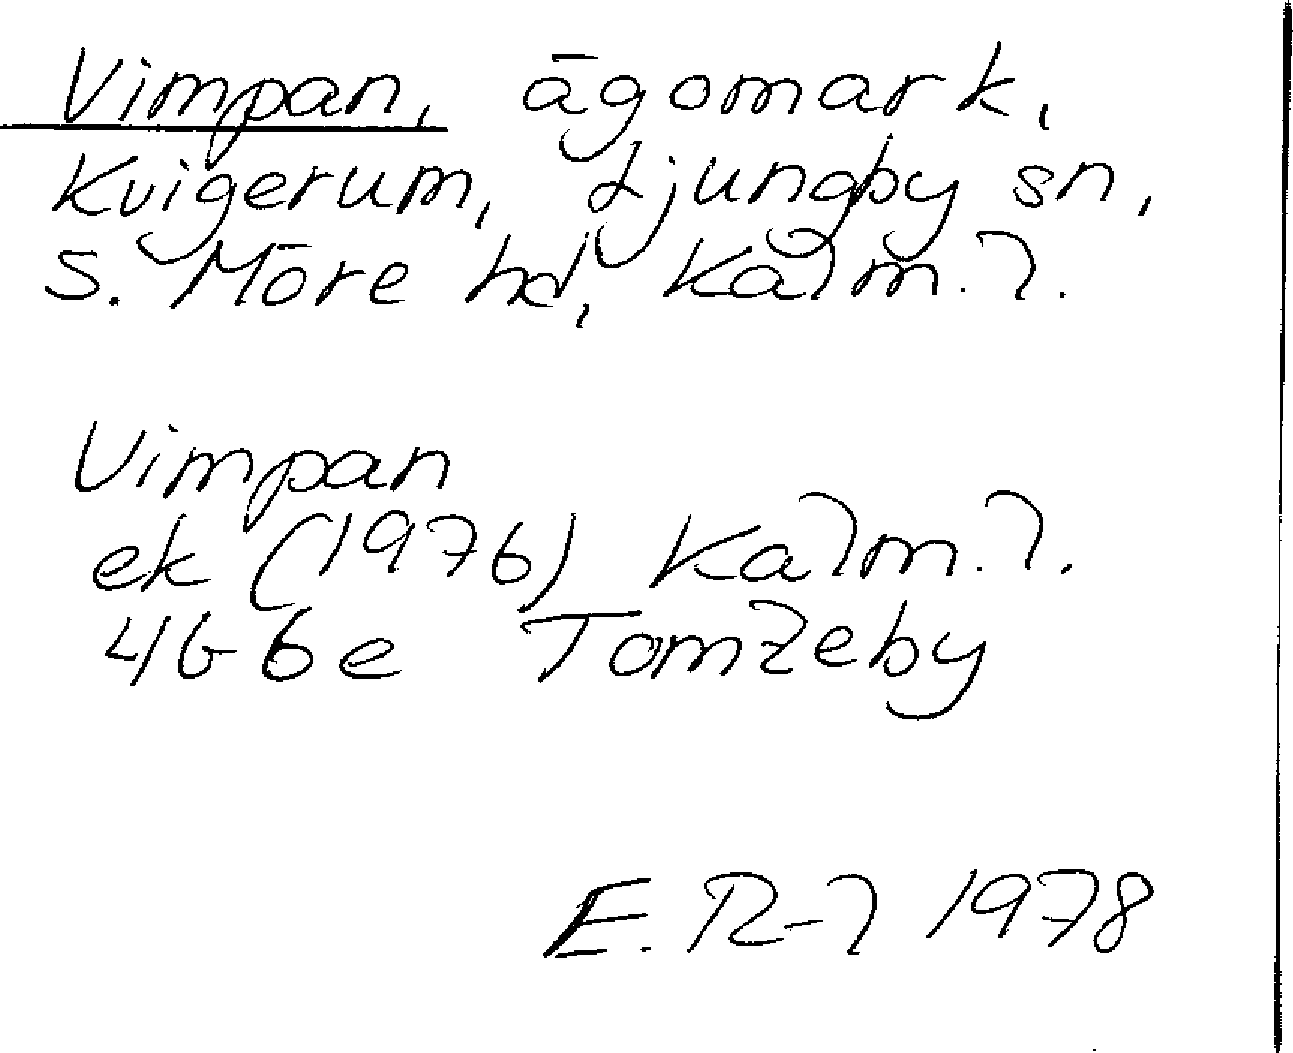 Vimpan, ägomark,
Kvigerum, Ljungby sn,
S. Möre hd, Kalm. l.
Vimpan
ek (1976) Kalm. l.
4G 6e Tomteby
E. R-l 1978